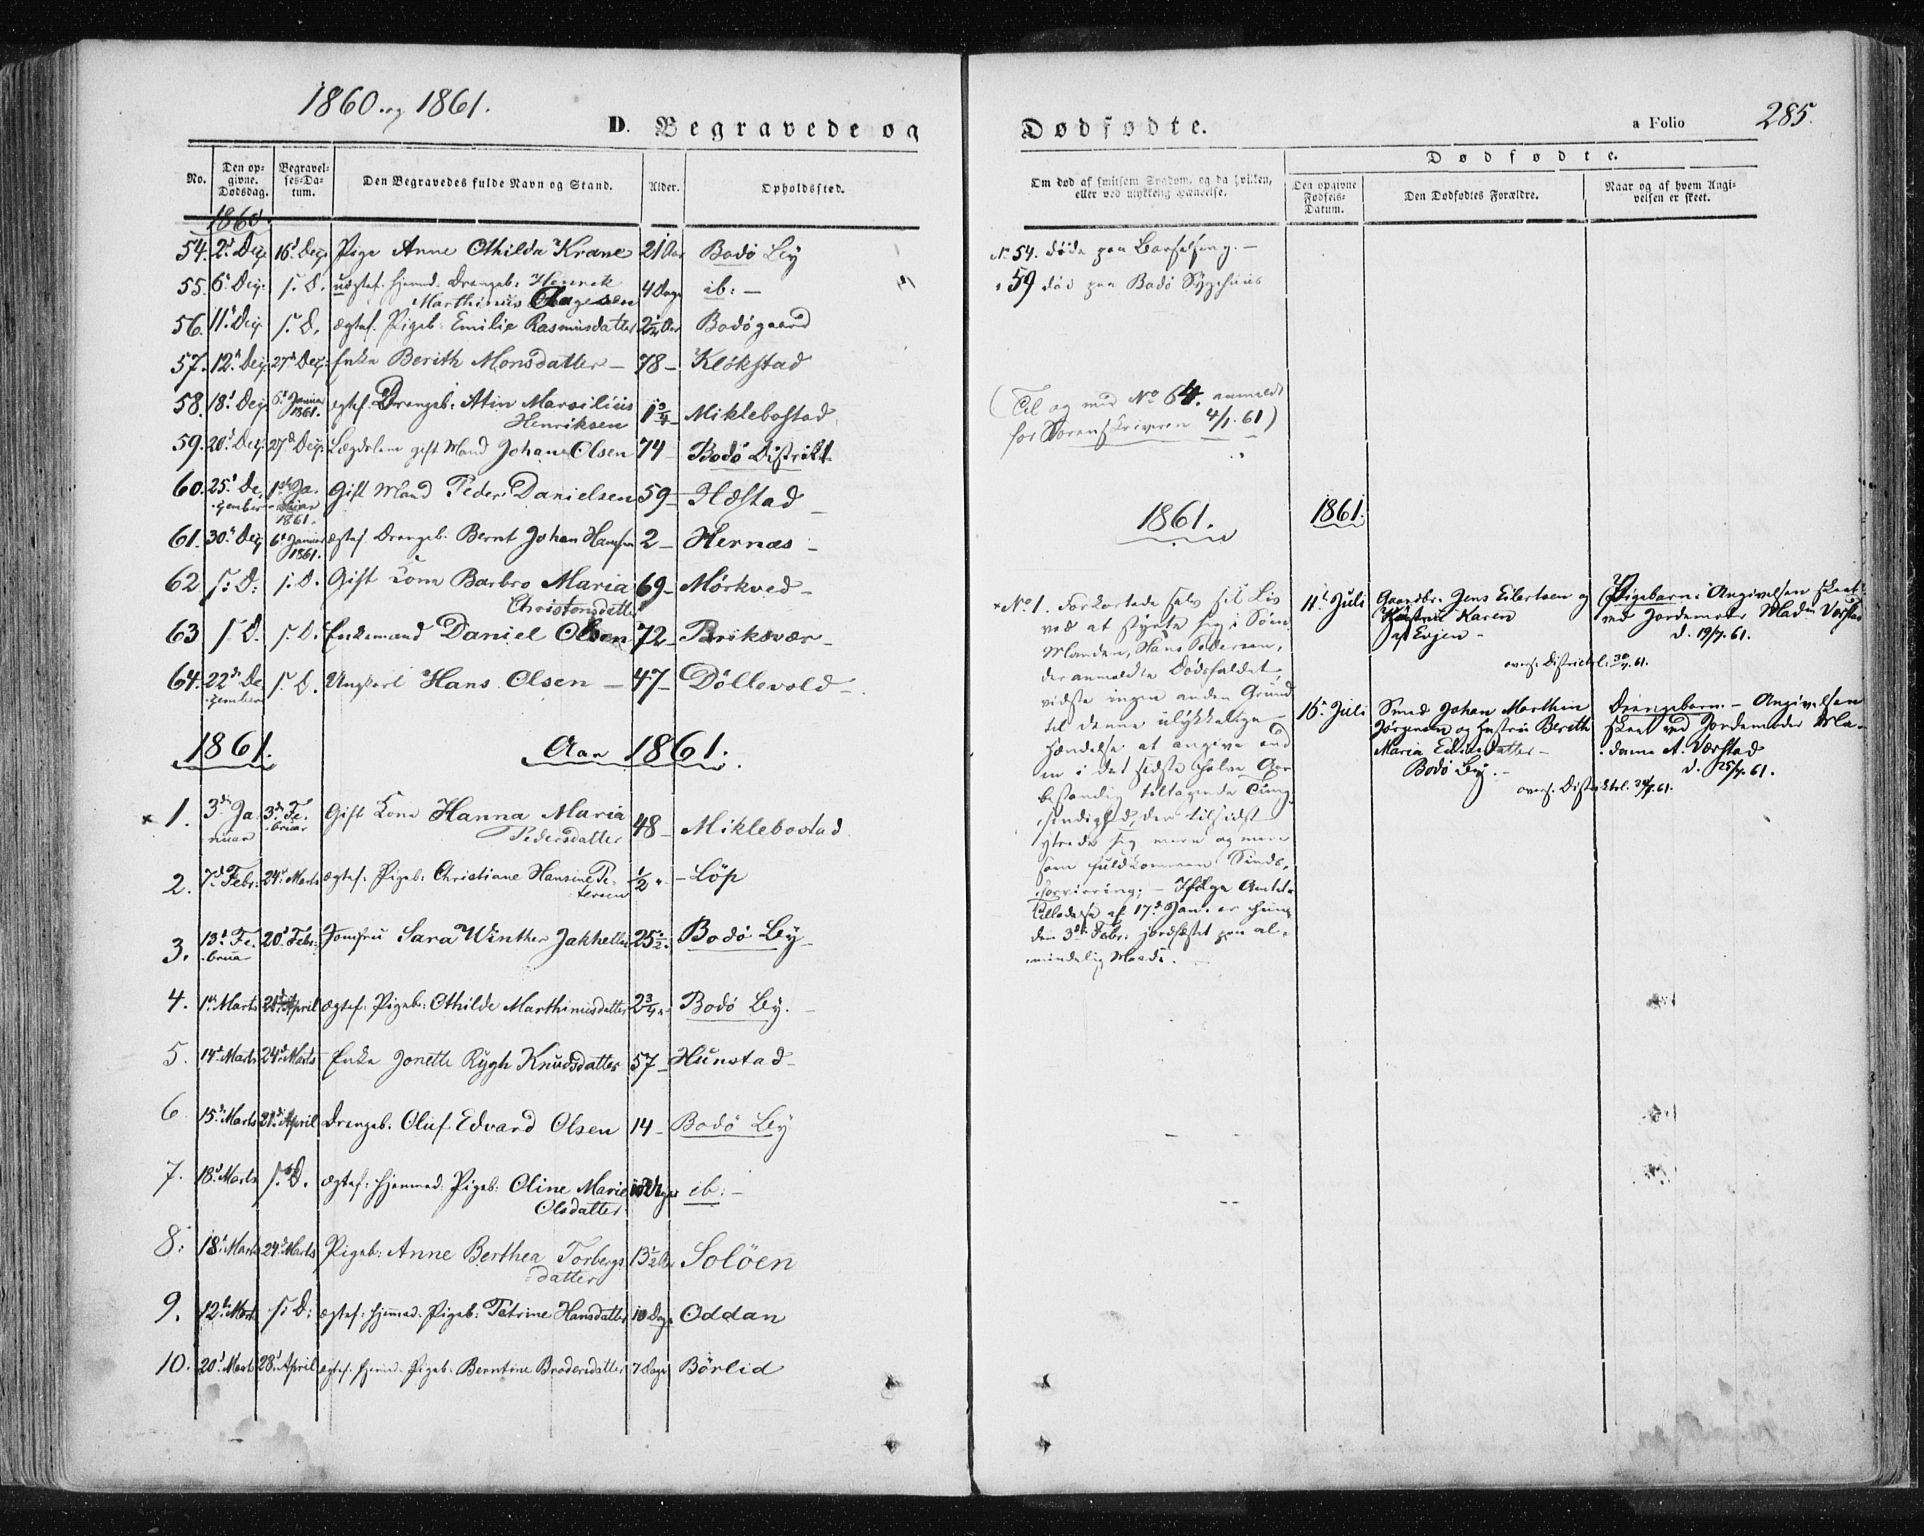 1860 og 1861.
D. Begravede og
No.
Den opgivne Dødsdag.
Begravelses-Datum.
Den Begravedes fulde Navn og Stand.
Alder.
Opholdssted.
1860.
54. 2d Dez. 16d Dez. Pige Anne Othilda Krane 21 Aar Bodö By
55. 6d Dez. s. D. uægtef. hjemd. Drengeb. Henrik
Marthinus 4 Dage ib: -
56. 11d Dez. s. D. ægtef. Pigeb. Emilie Rasmusdatter 2 1/4 Aar Bodögaard
57. 12d Dez. 27d Dez. Enke Berith Monsdatter - 78 - Klökstad
58. 18d Dez. 6d Januar 1861. ægtef. Drengeb: Atin Marsilius
Henriksen 1 3/4 - Miklebostad.
59. 20d Dez. 27d Dez. Lægdslem gift Mand Johan Olsen 74 - Bodö Distrikt
60. 25d Dezember 1ste Januar 1861. Gift Mand Peder Danielsen 59 - Hæstad -
61. 30d Dez. 6d Januar 1861. ægtef. Drengeb. Bernt Johan Hansen 2 - Hernæs -
62 s: D: s. D. Gift Kone Barbro Maria
Christensdatter 69 - Mörkved -
63 s. D. s. D. Enkemand Daniel Olsen 72 - Briksvær -
64. 22de Dezember s. D. Ungkarl Hans Olsen - 47 - Döllevold -
1861. Aar 1861.
× 1. 3die Januar 3die Februar Gift Kone Hanna Maria
Pedersdatter 48 - Miklebostad.
2. 7d Febr. 24d Marts ægtef. Pigeb: Christiane Hansine Petersen 1/2 " - Löp
3. 13d Februar 20d Febr. Jomfru Sara Winther Jakhelln 25 1/2 - Bodö By -
4. 1ste Marts 21d April ægtef. Pigeb: Othilde Marthinusdatter 2 3/4 " - Bodö By. -
5. 14d Marts 24d Marts Enke Jonette Rygh Knudsdatter 57 - Hunstad -
6 15d Marts 21d April Drengeb. Oluf Edvard Olsen 14 - Bodö By
7. 18d Marts s. D. ægtef. hjemmed. Pigeb: Oline Marie
Olsdatter ib: -
8: 18d Marts 24d Marts Pigeb: Anne Berthea Torbergsdatter 13 1/2 Aar Solöen
9. 12te Marts s: D: ægtef: hjemmed. Pigeb: Petrine Hansdatter 10 Dage Oddan
10. 20d Marts 28d April ægtef. hjemd. Pigeb. Berntine Brodersdatter 7 Dage Börlid
Dødfødte.
a Folio 285.
Om død af smitsom Sygdom, og da hvilken,
eller ved ulykkelig Hændelse.
Dødfødte.
Den opgivne Fødsels-Datum.
Den Dødfødtes Forældre.
Naar og af hvem Angivelsen er skeet.
No 54. döde paa Barselseng. -
" 59 död paa Bodö Sygehuus
(Til og med No 64. anmeldt
for Sorenskriveren 4/1. 61)
1861. 1861.
× No 1. Forkortede selv sit Liv
ved at styrte sig i Söen.
Manden, Hans Pedersen,
der anmeldte Dödsfaldet,
vidste ingen anden Grund
til denne ulykkelige
Hændelse at angive end
en i det sidste halve Aar
bestandig tiltagende Tungsindighed, der tilsidst
ytrede sig mere og mere
som fuldkommen Sindsforvirring. - Ifölge Amtets
Tilladelse af 17d Jan. er hun
den 3die Febr. jordfæstet paa almindelig Maade. -
11te Juli Gaardbr. Jens Eilertsen og
Hustru Karen
af Evjen -
Pigebarn: Angivelsen skeet
ved Jordemoder Madm Værstad
d. 19/7. 61.
overs. Districtsl. 30/7. 61.
16d Juli Smed Johan Marthin
Jörgensen og Hustru Berith
Maria Edisdatter -
Bodö By. -
Drengebarn. - Angivelsen
skeet ved Jordemoder Madame A. Værstad
d. 25/7. 61.